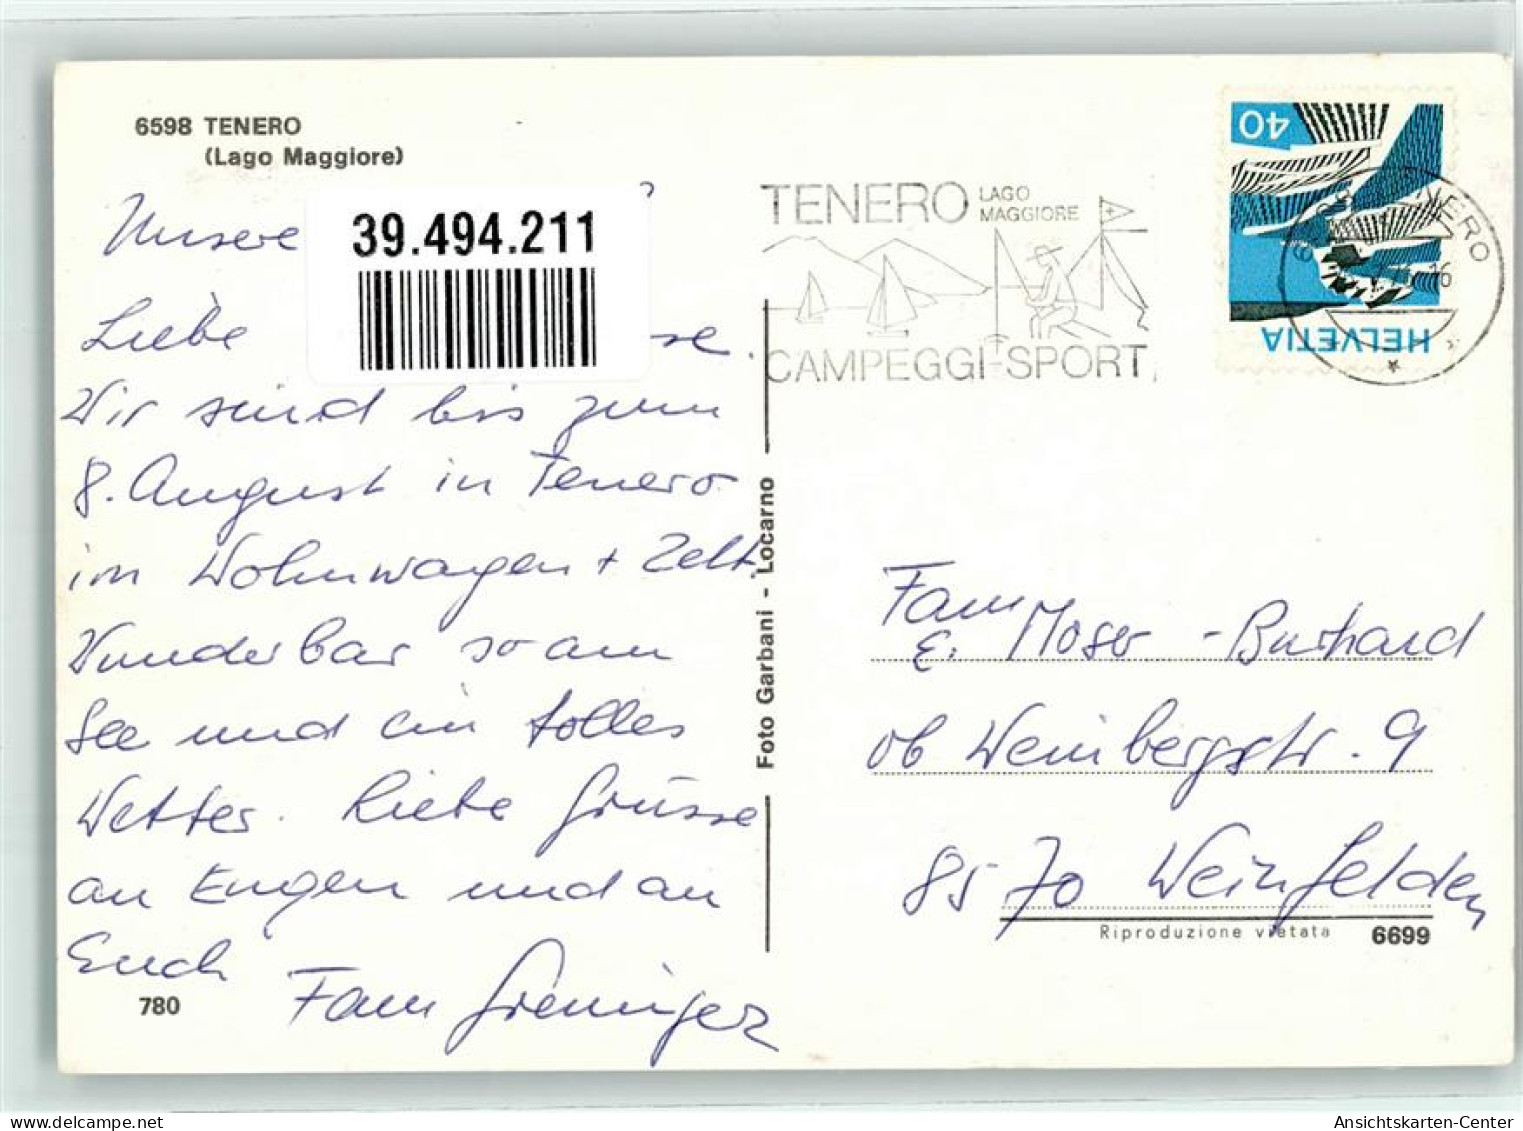 6598 TENERO
(Lago Maggiore)
Unsere
39.494.211
Liebe
se.
Wir sind bis zum
8. August in Tenero
im Wohnwagen + Zelt.
Wunderbar so am
See und ein tolles
Wetter. Liebe Grüsse
an Eugen und an
Euch
Fam Greminger
780
Foto Garbani - Locarno
TENERO LAGO
MAGGIORE
CAMPEGGI-SPORT
40
HELVETIA
TENERO
16
Fam
E. Moser - Burkard
ob Weinbergstr. 9
8570 Weinfelden
Riproduzione vietata 6699
Ansichtskarten-Center